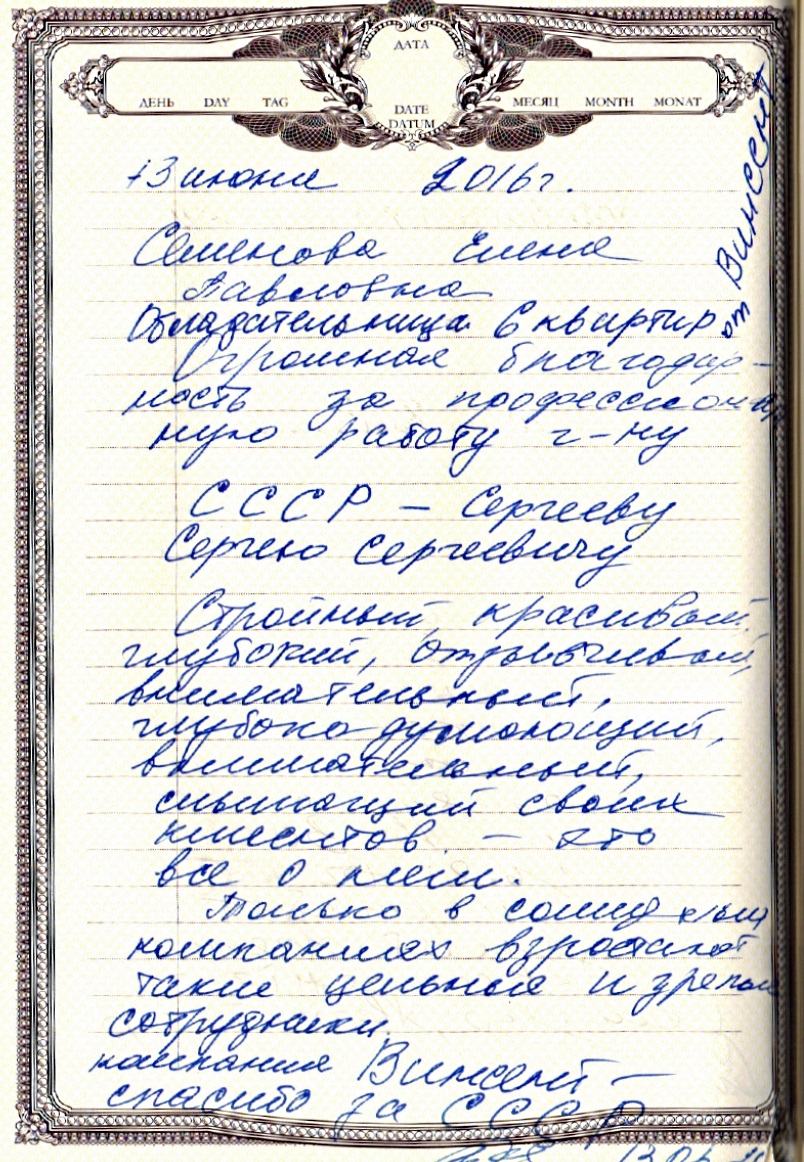 ДАТА
ДЕНЬ DAY TAG
DATE
DATUM
МЕСЯЦ MONTH MONAT
13 июня 2016 г.
Семенова Елена
Павловна
Обладательница 6 квартир
от Винсент
Огромная благодар-
ность за профессиональ
ную работу г-ну
СССР - Сергееву
Сергею Сергеевичу
Стройный, красивый,
глубокий, отзывчивый,
внимательный,
глубоко думающий,
внимательный,
слышащий своих
клиентов - это
все о нем.
Только в солидных
компаниях взрастают
такие цельные и зрелые
сотрудники.
компания Винсент -
спасибо за СССР
13.06